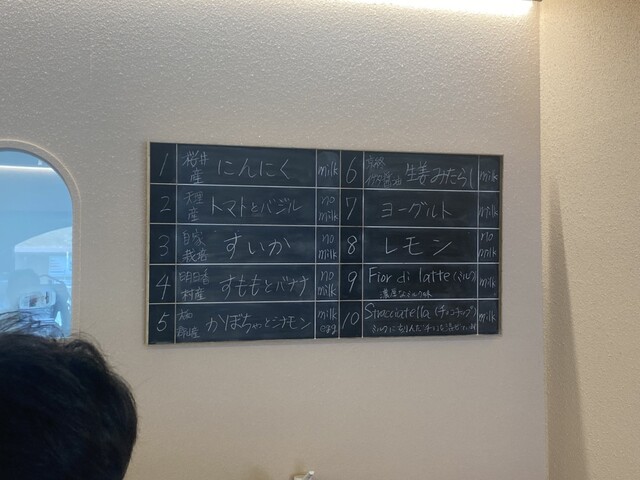 1 桜井産 にんにく milk
2 天理産 トマトとバジル no milk
3 自家栽培 すいか no milk
4 明日香村産 すももとバナナ no milk
5 かぼちゃとシナモン milk
6 生姜みたらし milk
7 ヨーグルト milk
8 レモン no milk
9 Fior di latte (ミルク) milk
濃厚なミルク味
10 Stracciatella (チョコチップ) milk